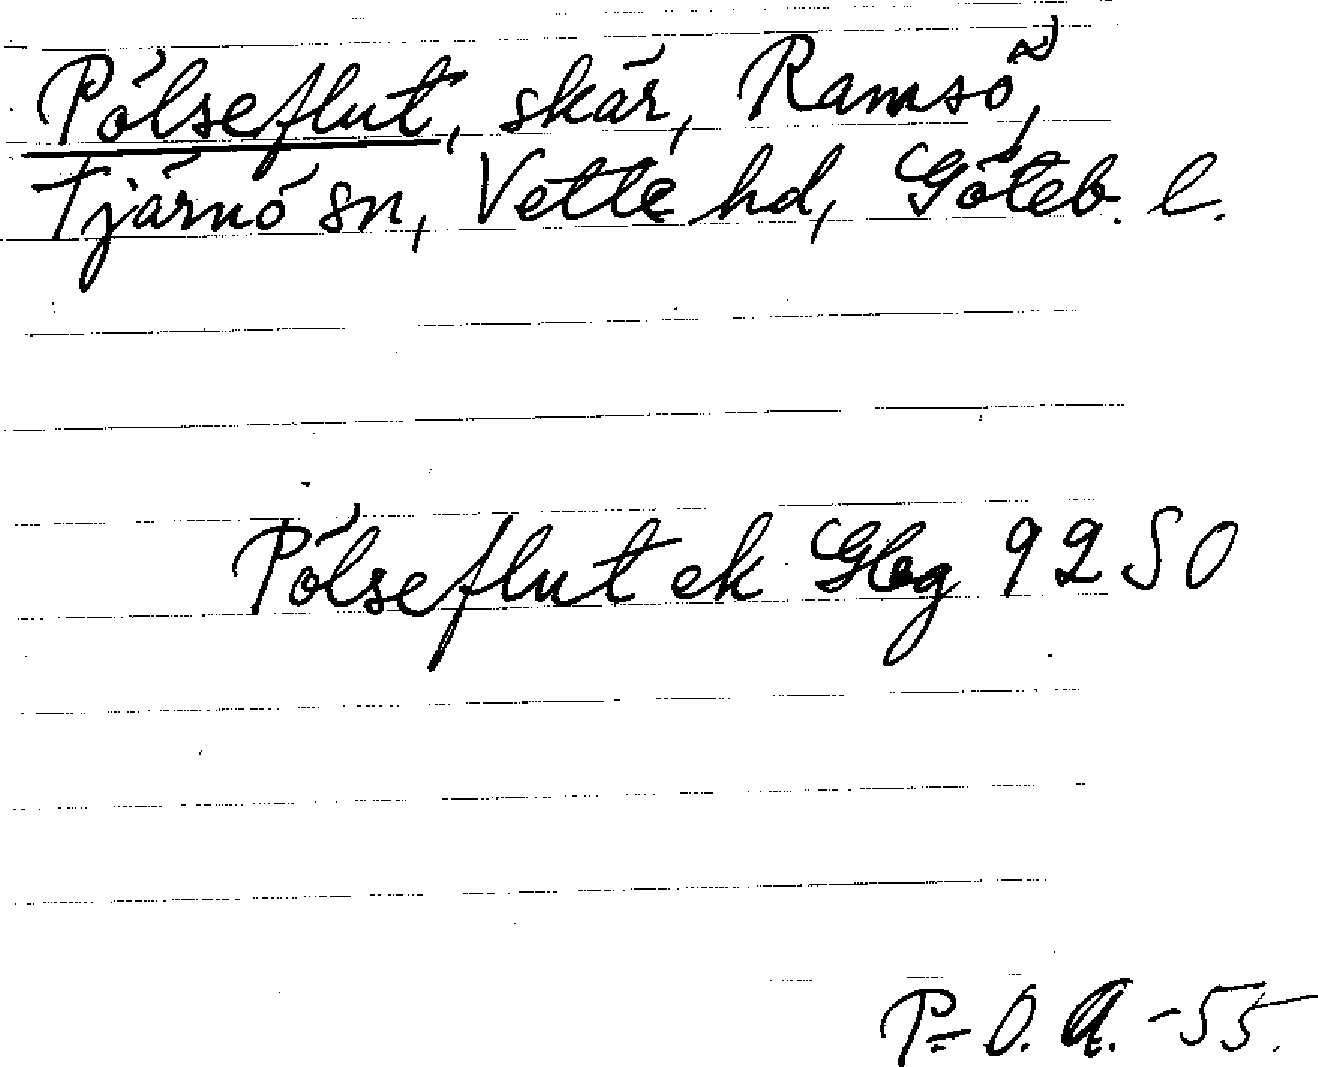 Pölseflut, skär, Ramsö,
Tjärnö sn, Vette hd, Göteb. l.
Pölseflut ek Gbg 9250
P-O. A. -55.